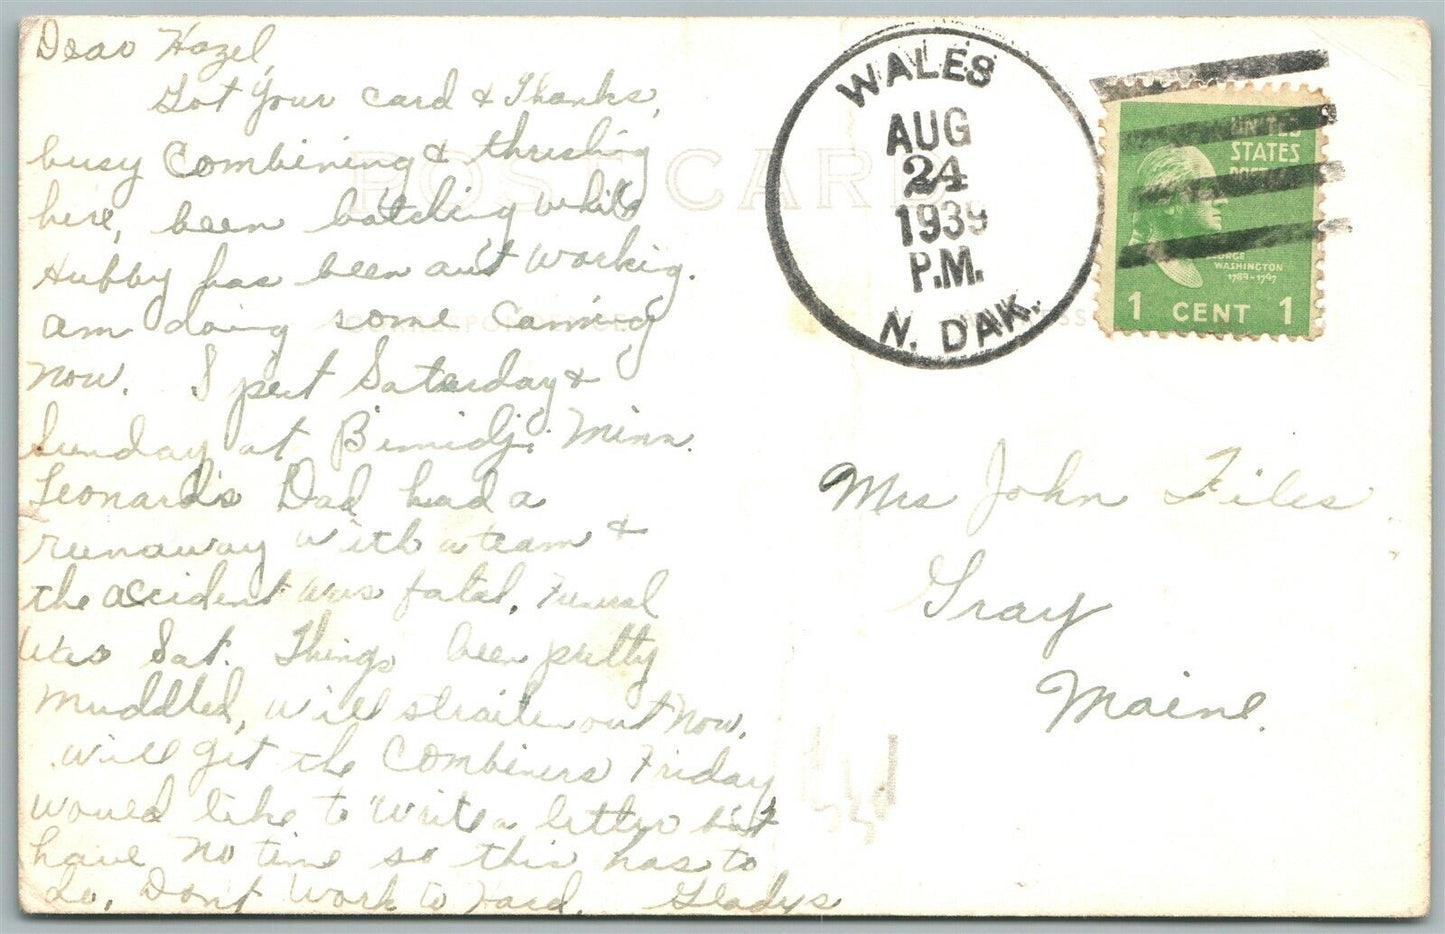 Dear Hazel,
Got your card & Thanks,
busy Combining & threshing
here, been batching while
Hubby has been out working.
am doing some Canning
now. Spent Saturday &
Sunday at Bimidji Minn.
Leonard's Dad had a
runaway with a team &
the accident was fatal. Funeral
was Sat. Things been pretty
muddled, will straiten out now.
will get the Combiners Friday
would like to write a letter but
have no time so this has to
do, Dont Work to Hard. Gladys
POST CARD
CORRESPONDENCE
WALES
AUG
24
1939
P.M.
N. DAK.
UNITED
STATES
POSTAGE
GEORGE
WASHINGTON
1789-1797
1 CENT 1
Mrs John Files
Gray
Maine.